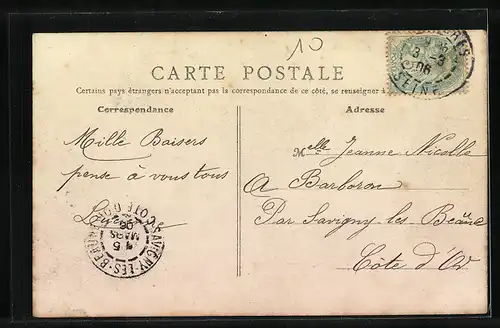 10
CARTE POSTALE
Certains pays étrangers n'acceptant pas la correspondance de ce côté, se renseigner
Correspondance
Adresse
Mille Baisers
pense à vous tous
Melle Jeanne Nicolle
A Barboron
Par Savigny les Beaune
Côte d'Or
3 -3
06
SEINE
SAVIGNY-LES-BEAUNE
COTE D'OR
5
MARS
06